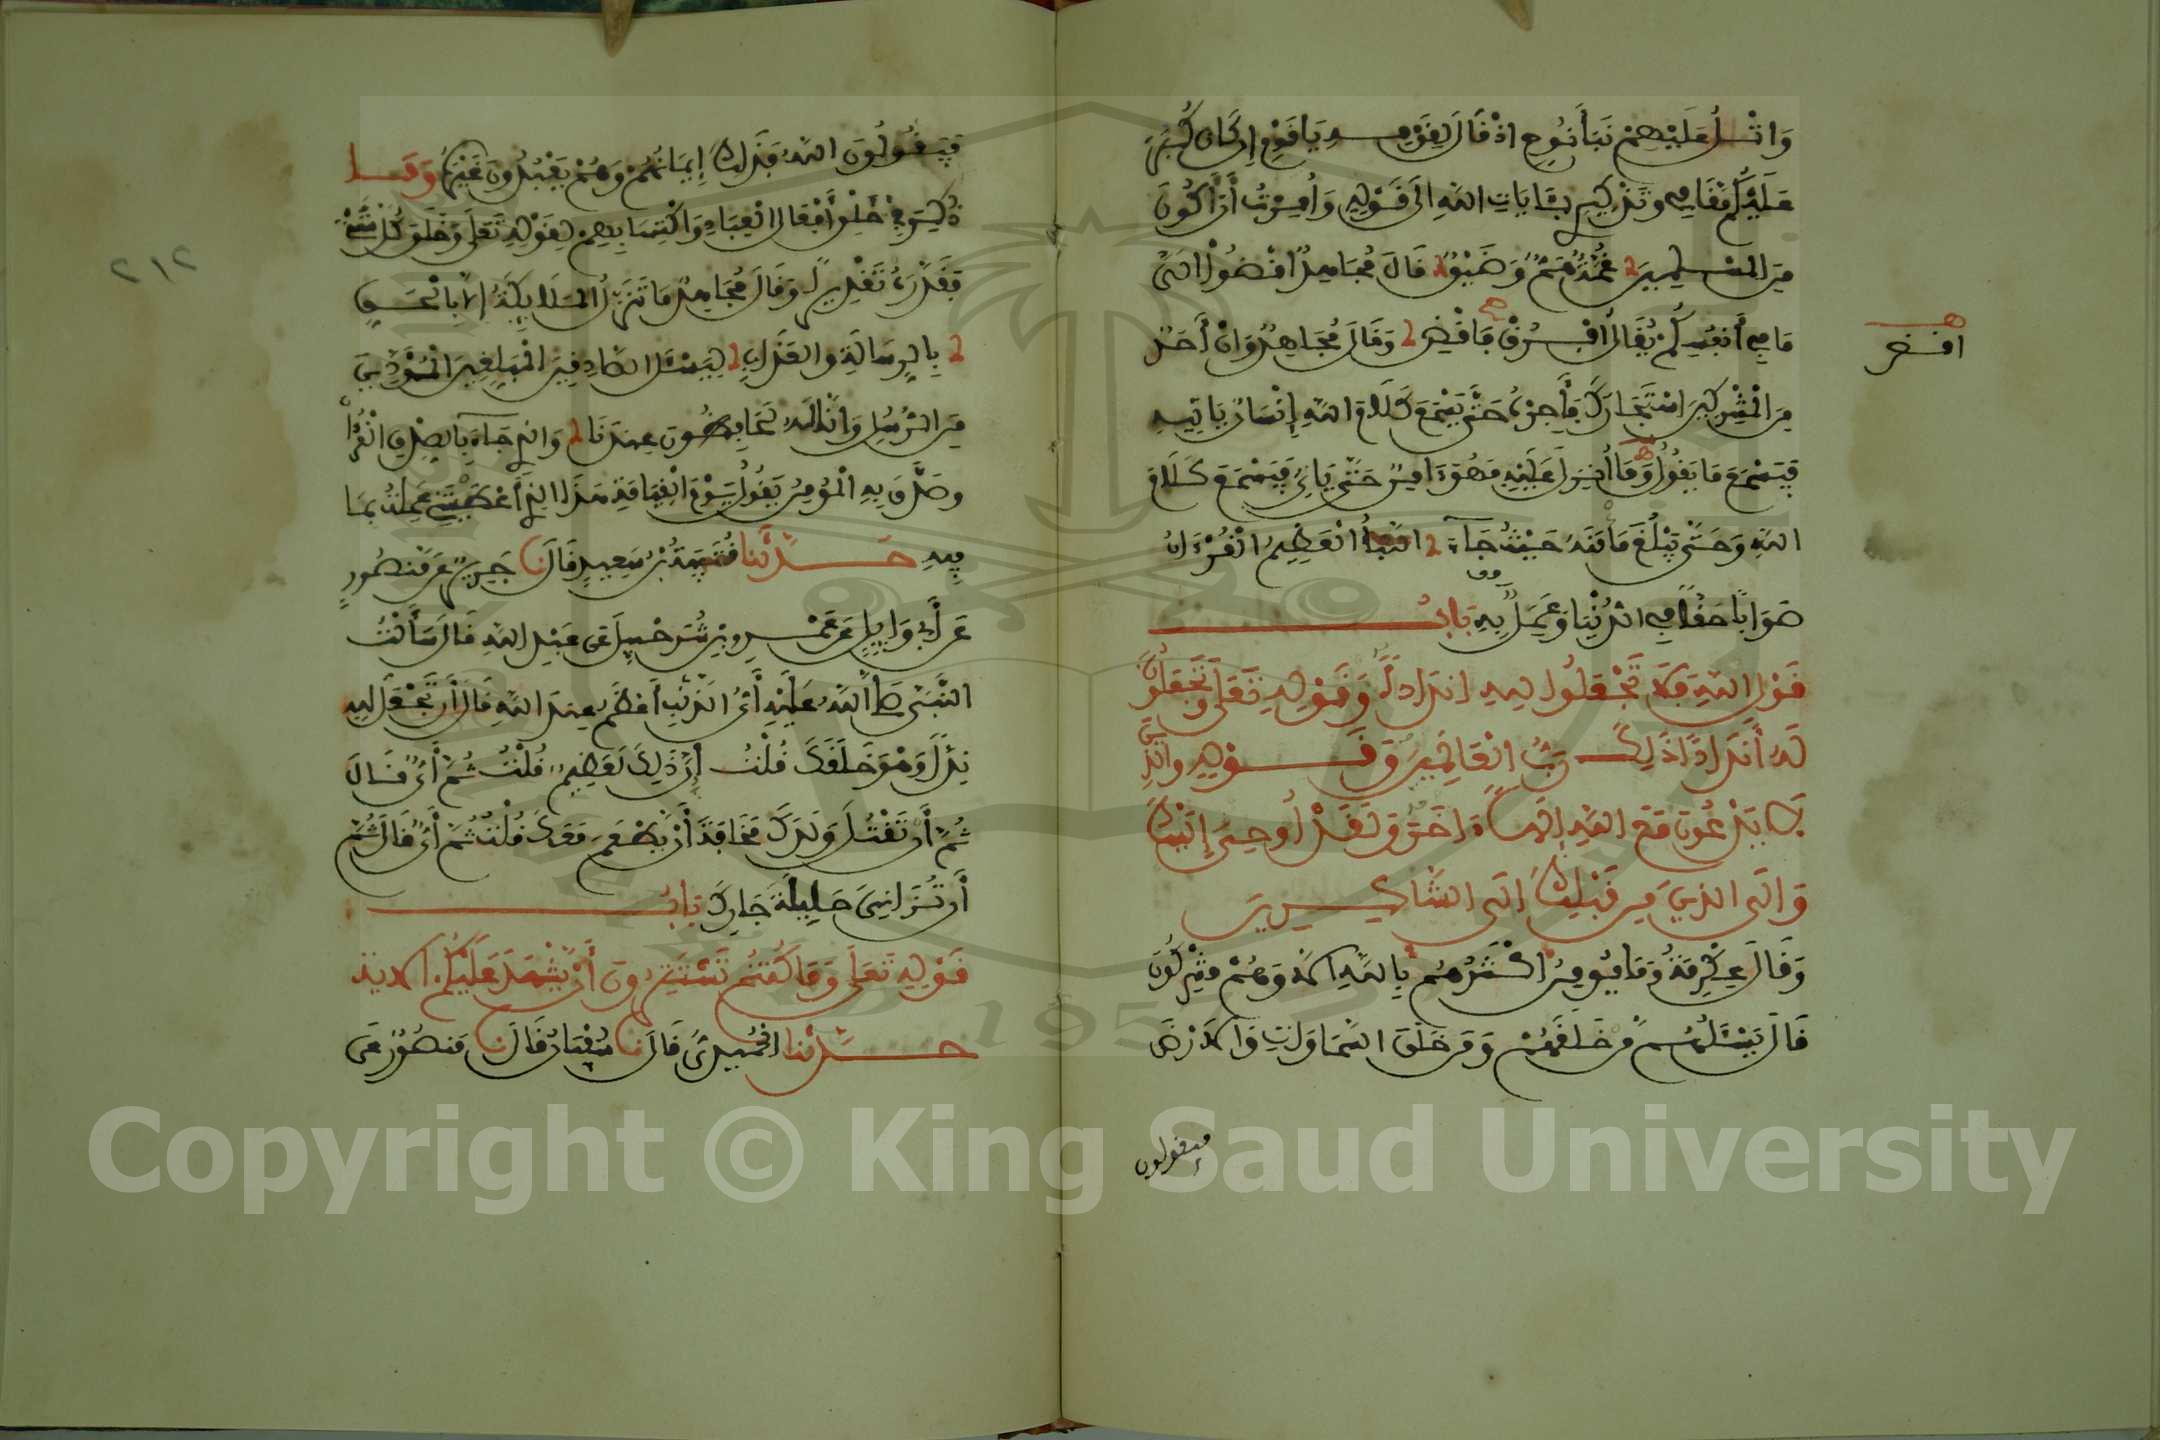 وَاتْلُ عَلَيْهِمْ نَبَأَ نُوحٍ اذْ قَالَ لِقَوْمِهِ يَا قَوْمِ إِن كَانَ كَبُرَ
عَلَيْكُم مَّقَامِي وَتَذْكِيرِي بِئَايَاتِ اللهِ الى قَوْلِهِ وَأُمِرْتُ أَنَ اكُونَ
مِنَ الْمُسْلِمِينَ غُمَّةٌ هَمٌّ وَضِيْقٌ قَالَ مُجَاهِدٌ اقْضُوا الَىَّ
مَا فِي أَنفُسِكُمْ يُقَالُ افْرُقْ فَاقْضِ وَقَالَ مُجَاهِدٌ وَانْ أَحَدٌ
مِنَ الْمُشْرِكِينَ اسْتَجَارَكَ فَأَجِرْهُ حَتَّى يَسْمَعَ كَلَامَ اللهِ إِنْسَانٌ يَاتِيهِ
فَيَسْتَمِعُ مَا يَقُولُ وَمَا أُنْزِلَ عَلَيْهِ فَهُوَ ءَامِنٌ حَتَّى يَاتِيَ فَيَسْمَعَ كَلَامَ
اللهِ وَحَتَّى يَبْلُغَ مَأْمَنَهُ حَيْثُ جَاءَ النَّبَأُ الْعَظِيمُ الْقُرْءَانُ
صَوَابًا حَقًّا فِي الدُّنْيَا وَعَمَلٌ بِهِ بَابُ
قَوْلِ اللهِ فَلَا تَجْعَلُوا لِلهِ اندَادًا وَقَوْلِهِ تَعَلَى وَتَجْعَلُونَ
لَهُ أَندَادًا ذَلِكَ رَبُّ الْعَالَمِينَ وَقَوْلِهِ وَالَّذِينَ
لَا يَدْعُونَ مَعَ اللهِ إِلَهًا ءَاخَرَ وَلَقَدْ أُوحِيَ إِلَيْكَ
وَالَى الذِينَ مِن قَبْلِكَ الَى الشَّاكِرِينَ
وَقَالَ عِكْرِمَةُ وَمَا يُومِنُ اكْثَرُهُم بِاللهِ الا وَهُمْ مُشْرِكُونَ
قَالَ تَسْئَلُهُم مَّنْ خَلَقَهُمْ وَمَنْ خَلَقَ السَّمَاوَاتِ وَالارْضَ
فيقولون
افض
فَيَقُولُونَ اللهُ فَذَلِكَ إِيمَانُهُمْ وَهُمْ يَعْبُدُونَ غَيْرَهُ وَمَا
ذُكِرَ فِي خَلْقِ أَفْعَالِ الْعِبَادِ وَاكْتِسَابِهِمْ لِقَوْلِهِ تَعَلَى وَخَلَقَ كُلَّ شَيْءٍ
فَقَدَّرَهُ تَقْدِيرًا وَقَالَ مُجَاهِدٌ مَا تَنَزَّلُ الْمَلَائِكَةُ إِلَّا بِالْحَقِّ
بِالرِّسَالَةِ وَالْعَذَابِ لِيَسْئَلَ الصَّادِقِينَ الْمُبَلِّغِينَ الْمُؤَدِّينَ
مِنَ الرُّسُلِ وَانَّا لَهُ لَحَافِظُونَ عِنْدَنَا وَالذِي جَاءَ بِالصِّدْقِ الْقُرْءَانُ
وَصَدَّقَ بِهِ الْمُؤْمِنُ يَقُولُ يَوْمَ الْقِيَامَةِ هَذَا الذِي أَعْطَيْتَنِي عَمِلْتُ بِمَا
فِيهِ حَدَّثَنَا قُتَيْبَةُ بْنُ سَعِيدٍ قَالَ نا جَرِيرٌ عَن مَّنصُورٍ
عَنْ أَبِي وَايِلٍ عَن عَمْرِو بْنِ شُرَحْبِيلَ عَن عَبْدِ اللهِ قَالَ سَأَلْتُ
النَّبِيَّ صلَّى اللهُ عَلَيْهِ أَيُّ الذَّنْبِ أَعْظَمُ عِندَ اللهِ قَالَ أَن تَجْعَلَ لِلهِ
نِدًّا وَهْوَ خَلَقَكَ قُلْتُ إِنَّ ذَلِكَ لَعَظِيمٌ قُلْتُ ثُمَّ أَيُّ قَالَ
ثُمَّ أَن تَقْتُلَ وَلَدَكَ مَخَافَةَ أَنْ يَّطْعَمَ مَعَكَ قُلْتُ ثُمَّ أَيُّ قَالَ ثُمَّ
أَن تُزَانِيَ حَلِيلَةَ جَارِكَ بَابُ
قَوْلِهِ تَعَلَى وَمَا كُنتُمْ تَسْتَتِرُونَ أَنْ يَّشْهَدَ عَلَيْكُمْ الاية
حَدَّثَنَا الْحُمَيْدِيُّ قَالَ نا سُفْيَانُ قَالَ نا مَنصُورٌ عَن
٢١٢
Copyright © King Saud University
195